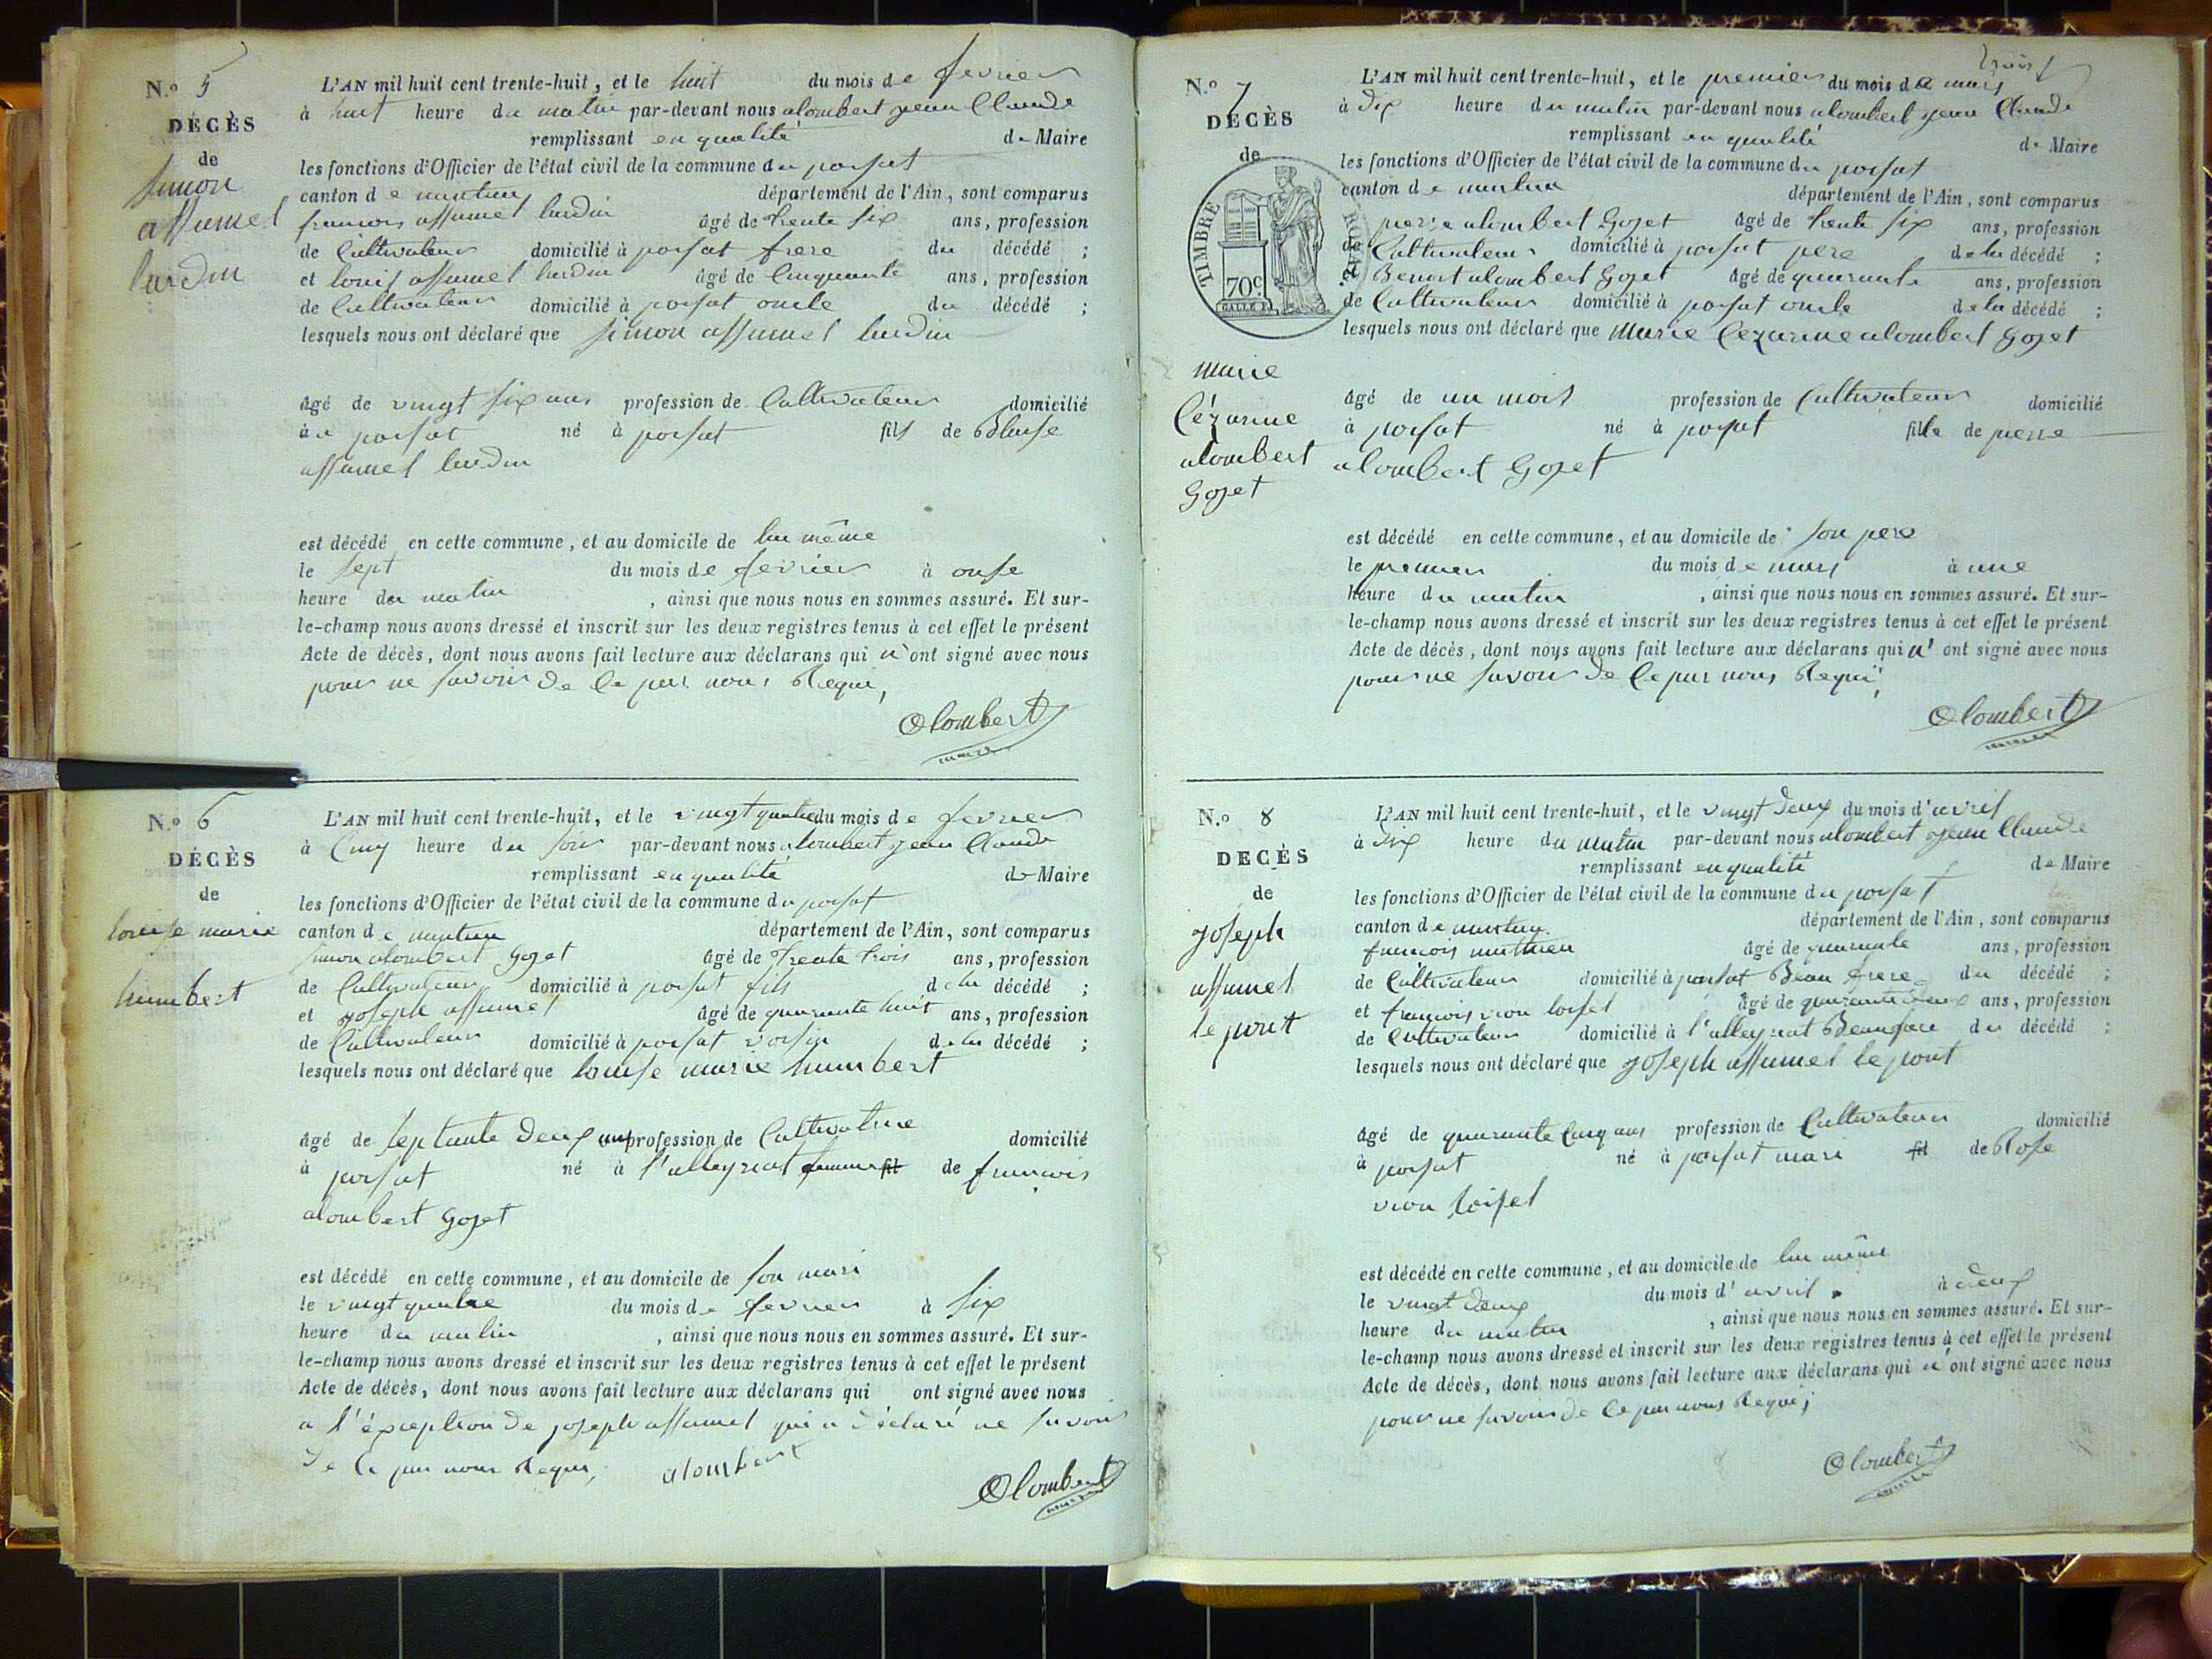 N.o 5
DÉCÈS
de
Simon
assumel
lurdin
L'AN mil huit cent trente-huit, et le huit du mois de fevrier
à huit heure du matin par-devant nous alombert jean Claude
remplissant en qualité de Maire
les fonctions d'Officier de l'état civil de la commune du poisat
canton de
département de l'Ain, sont comparus
francois assumel lurdin âgé de trente six ans, profession
de Cultivateur domicilié à poisat frere du décédé ;
et louis assumel lurdin âgé de Cinquante ans, profession
de Cultivateur domicilié à poisat oncle du décédé ;
lesquels nous ont déclaré que Simon assumel lurdin
âgé de vingt six ans profession de Cultivateur domicilié
à u poisat né à poisat fils de Blaise
assumel lurdin
est décédé en cette commune, et au domicile de lui même
le sept du mois de fevrier à onse
heure du matin , ainsi que nous nous en sommes assuré. Et sur-
le-champ nous avons dressé et inscrit sur les deux registres tenus à cet effet le présent
Acte de décès, dont nous avons fait lecture aux déclarans qui n'ont signé avec nous
pour ne savoir de Ce par nous Requi,
alombert
maire
N.o 6
DÉCÈS
de
louise marie
humbert
L'AN mil huit cent trente-huit, et le vingt quatre du mois de fevrier
à Cinq heure du soir par-devant nous alombert jean Claude
remplissant en qualité de Maire
les fonctions d'Officier de l'état civil de la commune du poisat
canton de
département de l'Ain, sont comparus
simon alombert Goget âgé de trente trois ans, profession
de Cultivateur domicilié à poisat fils de la décédé ;
et joseph assumel âgé de quarante huit ans, profession
de Cultivateur domicilié à poisat voisin de la décédé ;
lesquels nous ont déclaré que louise marie humbert
âgé de septante deux ans profession de Cultivatrice domicilié
à poisat né à l'alleyriat femme fil de francois
alombert Goget
est décédé en cette commune, et au domicile de son mari
le vingt quatre du mois de fevrier à six
heure du matin , ainsi que nous nous en sommes assuré. Et sur-
le-champ nous avons dressé et inscrit sur les deux registres tenus à cet effet le présent
Acte de décès, dont nous avons fait lecture aux déclarans qui ont signé avec nous
a l'éxception de joseph assumel qui a déclaré ne savoir
de Ce par nous Requi, alombert
alombert
maire
trois
N.o 7
DÉCÈS
de
TIMBRE ROYAL
70c
marie
Cézarine
alombert
Goget
L'AN mil huit cent trente-huit, et le premier du mois de mars
à dix heure du matin par-devant nous alombert jean Claude
remplissant en qualité de Maire
les fonctions d'Officier de l'état civil de la commune du poisat
canton de
département de l'Ain, sont comparus
pierre alombert Goget âgé de trente six ans, profession
de Cultivateur domicilié à poisat pere de la décédé ;
et Benoit alombert Goget âgé de quarante ans, profession
de Cultivateur domicilié à poisat oncle de la décédé ;
lesquels nous ont déclaré que Marie Cezarine alombert Goget
âgé de un mois profession de Cultivateur domicilié
à poisat né à poisat fille de pierre
alombert Goget
est décédé en cette commune, et au domicile de son pere
le premier du mois de mars à une
heure du matin , ainsi que nous nous en sommes assuré. Et sur-
le-champ nous avons dressé et inscrit sur les deux registres tenus à cet effet le présent
Acte de décès, dont nous avons fait lecture aux déclarans qui n' ont signé avec nous
pour ne savoir de Ce par nous Requi,
alombert
maire
N.o 8
DECÈS
de
joseph
assumel
le pont
L'AN mil huit cent trente-huit, et le vingt deux du mois d'avril
à dix heure du matin par-devant nous alombert jean Claude
remplissant en qualité de Maire
les fonctions d'Officier de l'état civil de la commune du poisat
canton de
département de l'Ain, sont comparus
francois mathieu âgé de quarante ans, profession
de Cultivateur domicilié à poisat Beau frere du décédé ;
et francois vion loisel âgé de quarante deux ans, profession
de Cultivateur domicilié à l'alleyriat Beaufrere du décédé ;
lesquels nous ont déclaré que joseph assumel le pont
âgé de quarante Cinq ans profession de Cultivateur domicilié
à poisat né à poisat mari fil de Rose
vion loisel
est décédé en cette commune, et au domicile de lui même
le vingt deux du mois d'avril à deux
heure du matin , ainsi que nous nous en sommes assuré. Et sur-
le-champ nous avons dressé et inscrit sur les deux registres tenus à cet effet le présent
Acte de décès, dont nous avons fait lecture aux déclarans qui n'ont signé avec nous
pour ne savoir de Ce par nous Requi ;
alombert
maire